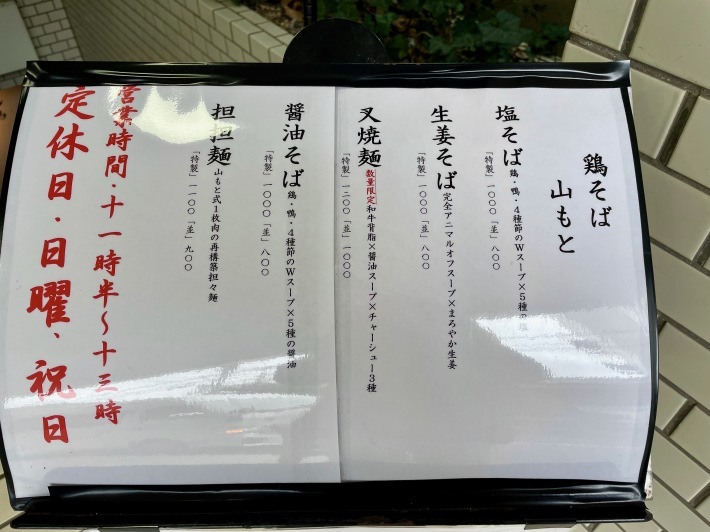 鶏そば
山もと
塩そば 鶏・鴨・4種節のWスープ×5種の塩
「特製」一〇〇〇「並」八〇〇
生姜そば 完全アニマルオフスープ×まろやか生姜
「特製」一〇〇〇「並」八〇〇
叉焼麺 数量限定 和牛背脂×醤油スープ×チャーシュー3種
「特製」一二〇〇「並」一〇〇〇
醤油そば 鶏・鴨・4種節のWスープ×5種の醤油
「特製」一〇〇〇「並」八〇〇
担担麺 山もと式1枚肉の再構築担々麺
「特製」一一〇〇「並」九〇〇
営業時間・十一時半〜十三時
定休日・日曜、祝日